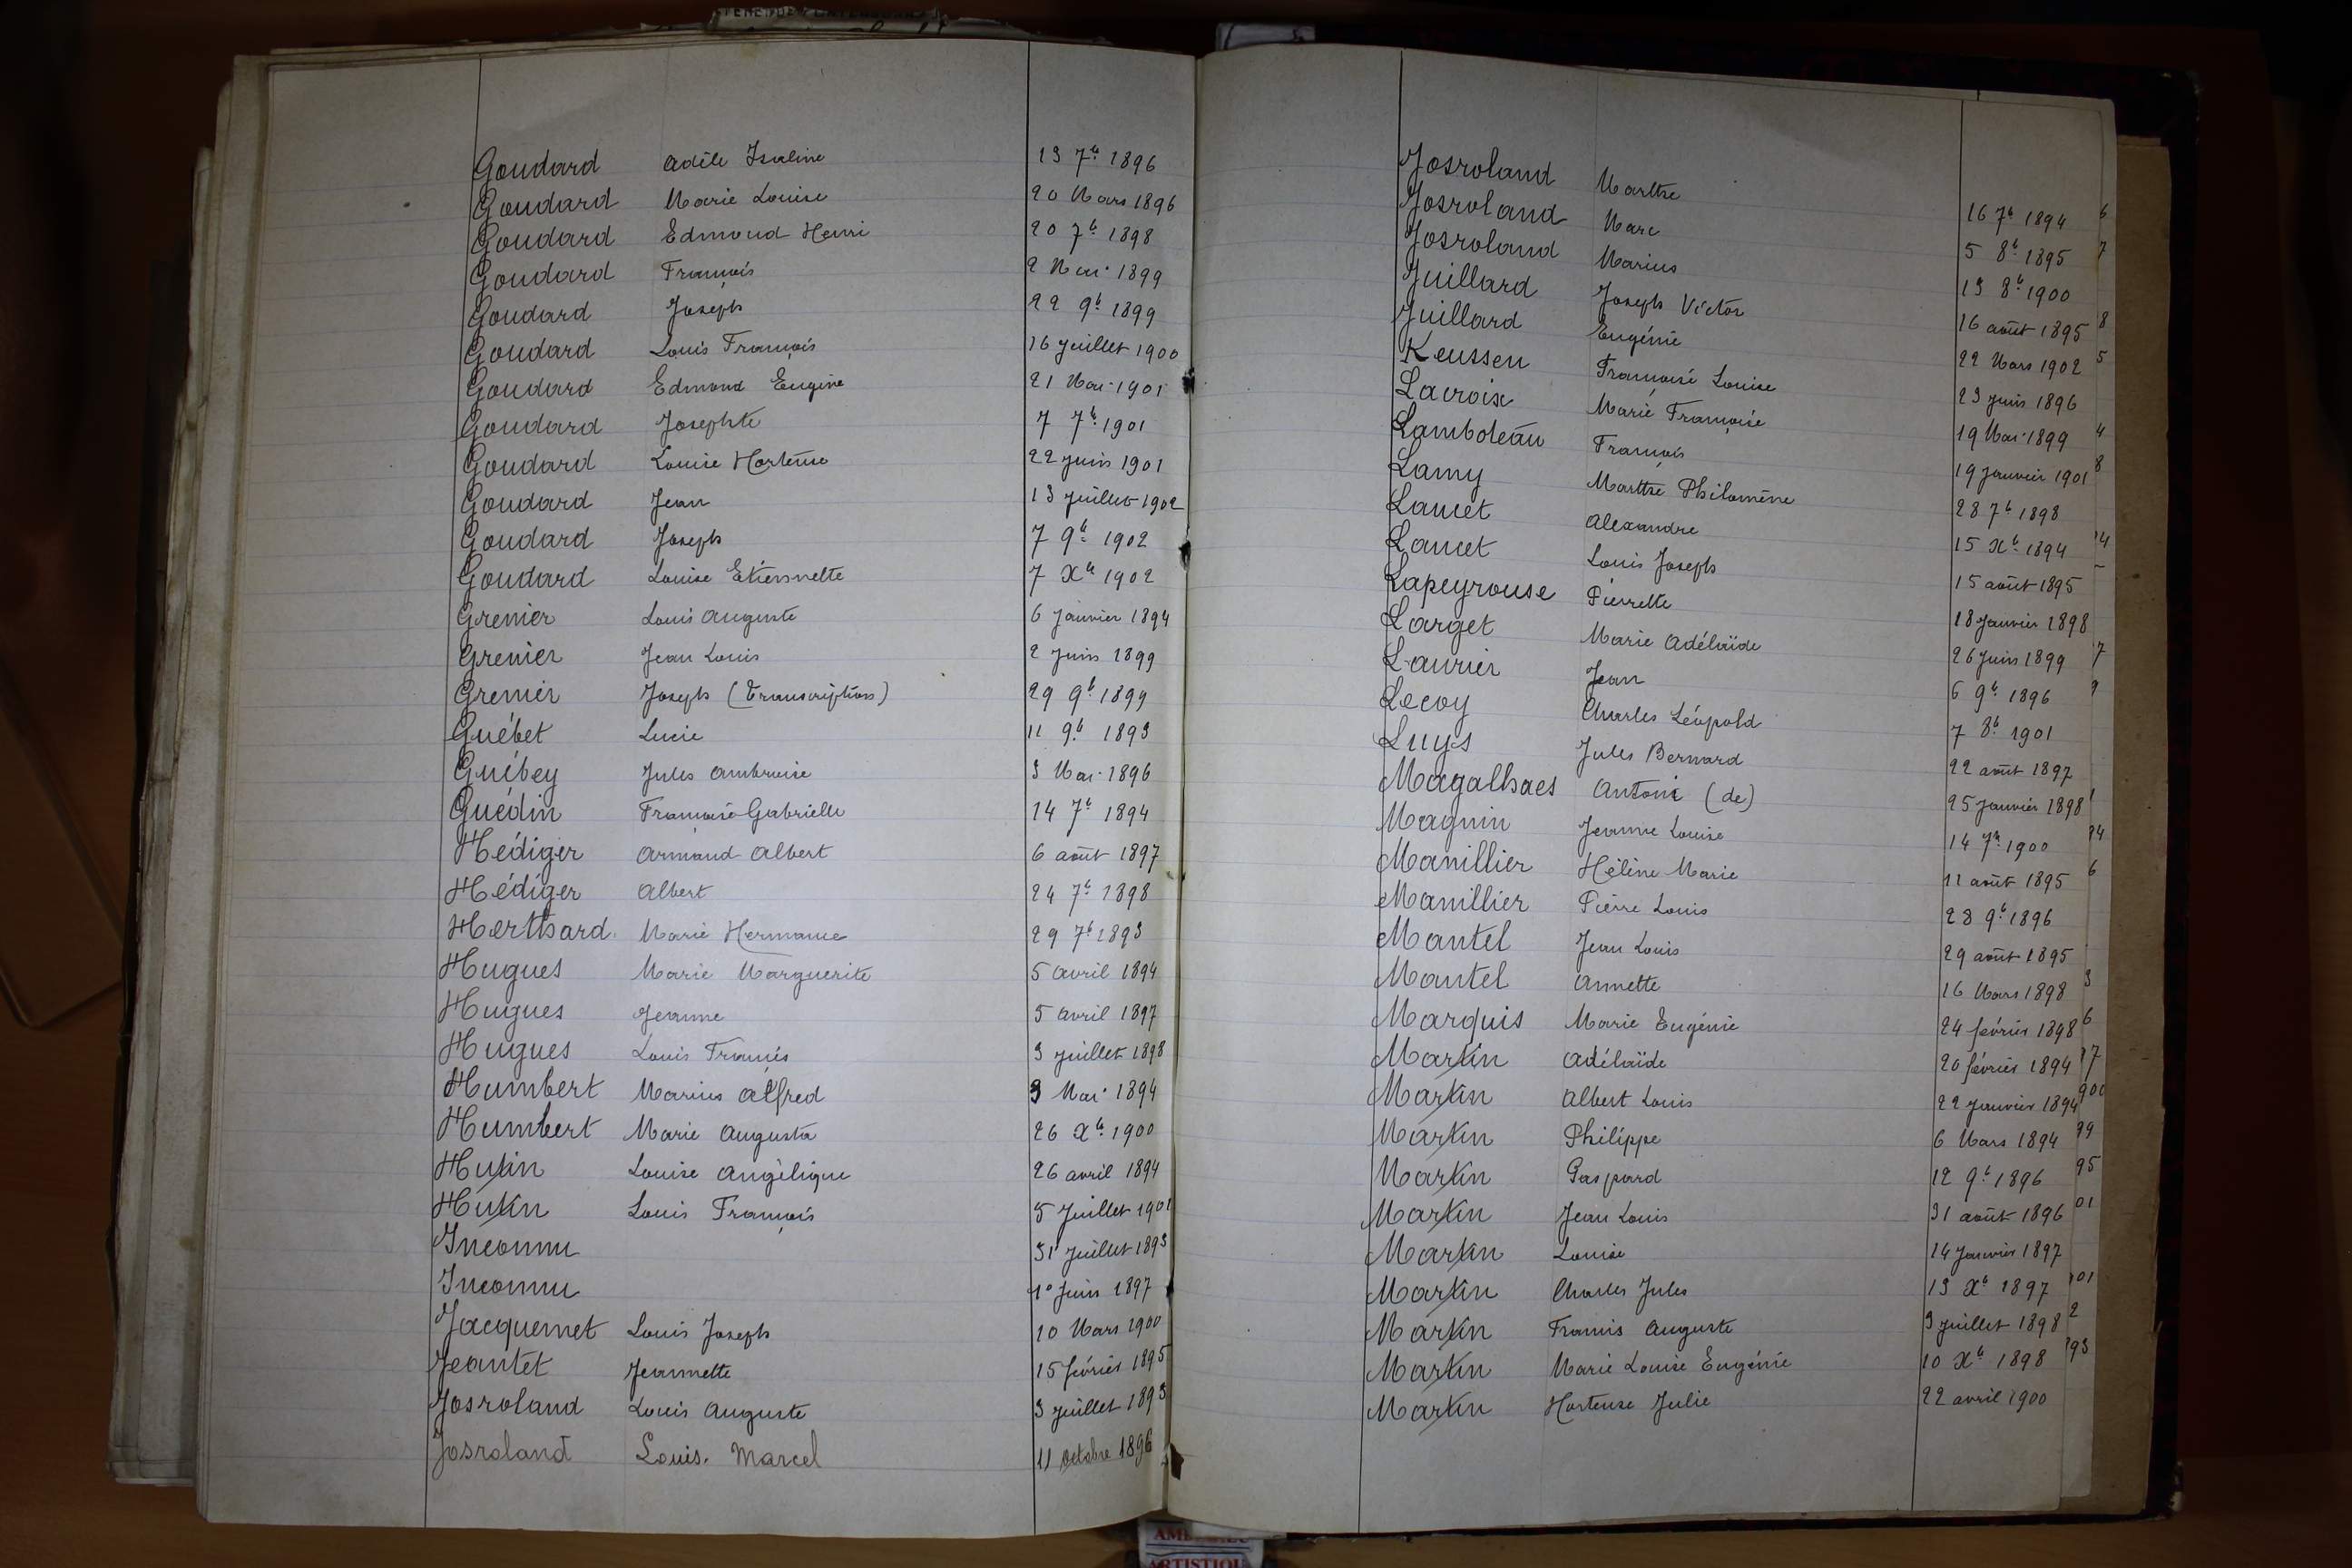 Goudard Adèle Isaline 13 7b. 1896
Goudard Marie Louise 20 Mars 1896
Goudard Edmond Henri 20 7b. 1898
Goudard François 2 Mai 1899
Goudard Joseph 22 9b. 1899
Goudard Louis François 16 Juillet 1900
Goudard Edmond Eugène 21 Mai 1901
Goudard Josephte 7 7b. 1901
Goudard Louise Hortense 22 Juin 1901
Goudard Jean 13 Juillet 1902
Goudard Joseph 7 9b. 1902
Goudard Louise Etiennette 7 Xb. 1902
Grenier Louis Auguste 6 Janvier 1894
Grenier Jean Louis 2 Juin 1899
Grenier Joseph (Transcription) 29 9b. 1899
Guébet Lucie 11 9b. 1893
Guébey Jules Ambroise 3 Mai 1896
Guédin Françoise Gabrielle 14 7b. 1894
Hédiger Armand Albert 6 août 1897
Hédiger Albert 24 7b. 1898
Herthard Marie Hermance 29 7b. 1893
Hugues Marie Marguerite 5 avril 1894
Hugues Jeanne 5 avril 1897
Hugues Louis François 3 Juillet 1898
Humbert Marius Alfred 3 Mai 1894
Humbert Marie Augusta 26 Xb. 1900
Hutin Louise Angélique 26 avril 1894
Hutin Louis François 5 Juillet 1901
Inconnu 31 Juillet 1893
Inconnu 1° Juin 1897
Jacquemet Louis Joseph 10 Mars 1900
Jeantet Jeannette 15 février 1895
Josroland Louis Auguste 3 Juillet 1893
Josroland Louis. Marcel 11 octobre 1896
Josroland Marthe 16 7b. 1894
Josroland Marc 5 8b. 1895
Josroland Marius 13 8b. 1900
Juillard Joseph Victor 16 août 1895
Juillard Eugénie 22 Mars 1902
Keussen Françoise Louise 23 Juin 1896
Lacroix Marie Françoise 19 Mai 1899
Lamboteau François 19 Janvier 1901
Lamy Marthe Philomène 28 7b. 1898
Lancet Alexandre 15 Xb. 1894
Lancet Louis Joseph 15 août 1895
Lapeyrouse Pierrette 18 Janvier 1898
Larget Marie Adélaïde 26 Juin 1899
Laurier Jean 6 9b. 1896
Lecoy Charles Léopold 7 8b. 1901
Luys Jules Bernard 22 août 1897
Magalhaes Antoni (de) 25 Janvier 1898
Magnin Jeanne Louise 14 7b. 1900
Manillier Hélène Marie 11 août 1895
Manillier Pierre Louis 28 9b. 1896
Mantel Jean Louis 29 août 1895
Mantel Annette 16 Mars 1898
Marquis Marie Eugénie 24 février 1898
Martin Adélaïde 20 février 1894
Martin Albert Louis 22 Janvier 1894
Martin Philippe 6 Mars 1894
Martin Gaspard 12 9b. 1896
Martin Jean Louis 31 août 1896
Martin Louise 14 Janvier 1897
Martin Charles Jules 13 Xb. 1897
Martin Francis Auguste 3 Juillet 1898
Martin Marie Louise Eugénie 10 Xb. 1898
Martin Hortense Julie 22 avril 1900